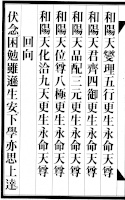 和陽天燮理五行更生永命天尊
和陽天君齊四御更生永命天尊
和陽天品配三元更生永命天尊
和陽天位尊八極更生永命天尊
和陽天化洽九天更生永命天尊
回向
伏念困勉雖遜生安下學亦思上達